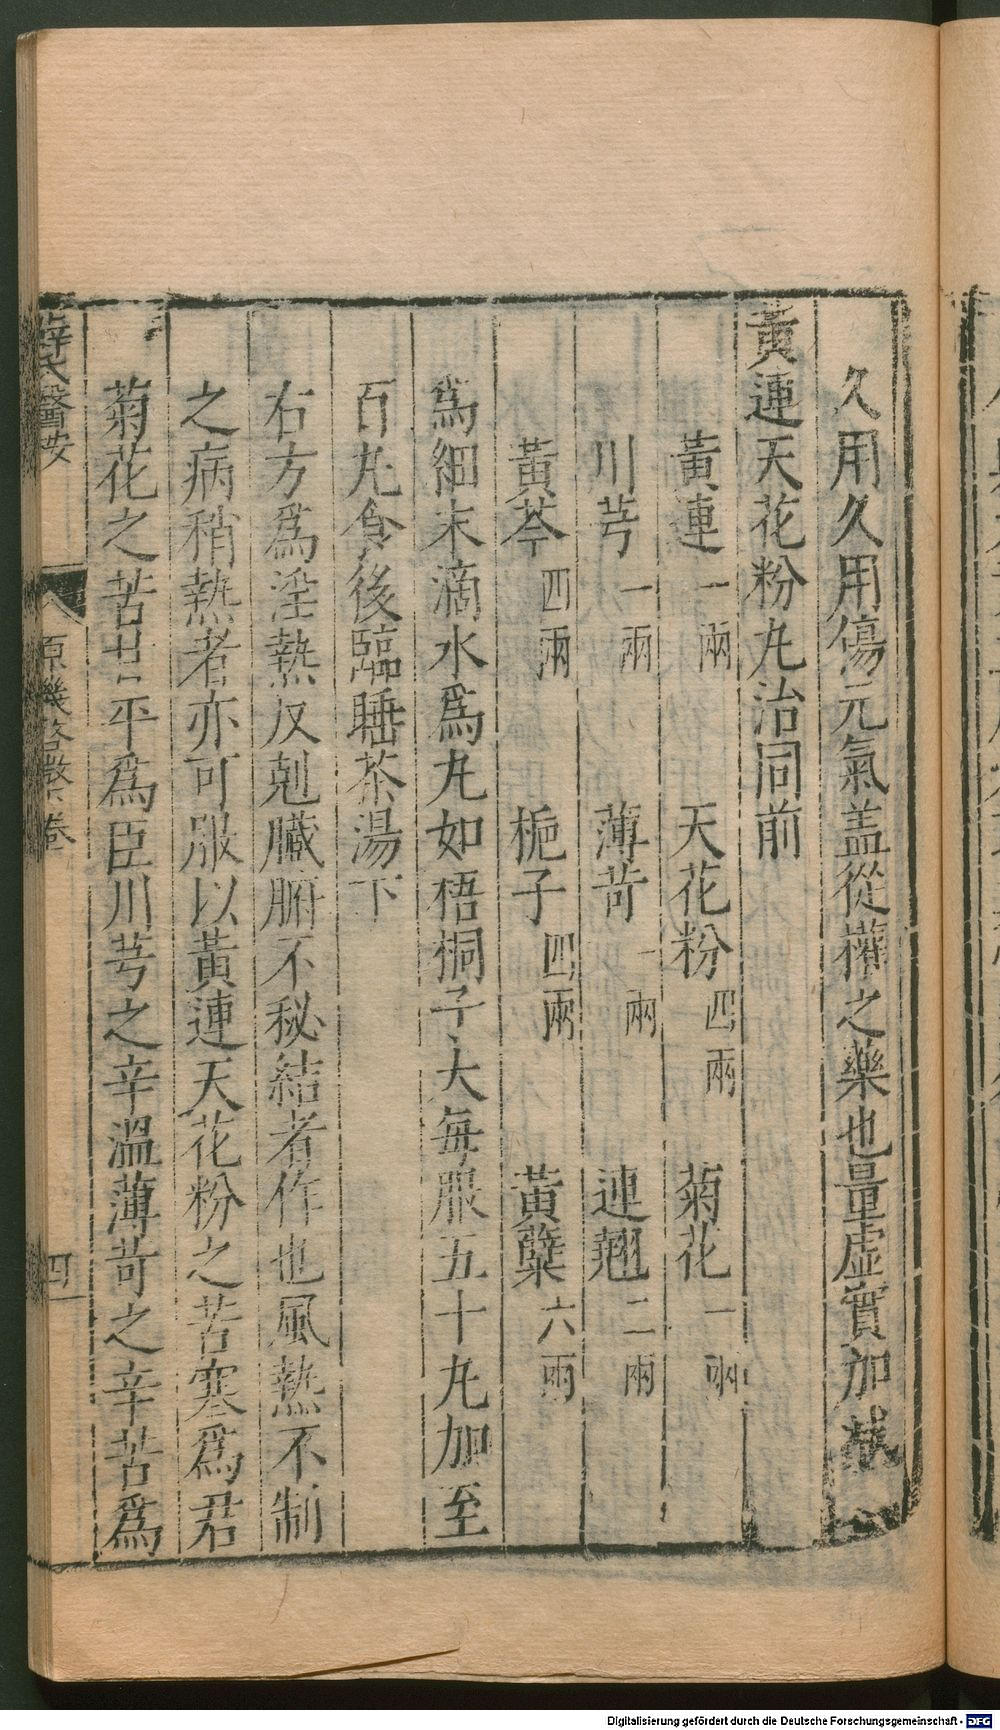 久用久用傷元氣盖從權之藥也量虛實加
黃連天花粉丸治同前
黃連一兩 天花粉四兩 菊花一兩
川芎一兩 薄苛一兩 連翹二兩
黃芩四兩 梔子四兩 黃蘗六兩
爲細末滴水爲丸如梧桐子大每服五十丸加至
百丸食後臨睡茶湯下
右方爲淫熱反剋臟腑不秘結者作也風熱不制
之病稍熱者亦可服以黃連天花粉之苦寒爲君
菊花之苦甘平爲臣川芎之辛溫薄苛之辛苦爲
薛氏醫按 原機啓微 卷 四
Digitalisierung gefördert durch die Deutsche Forschungsgemeinschaft - DFG